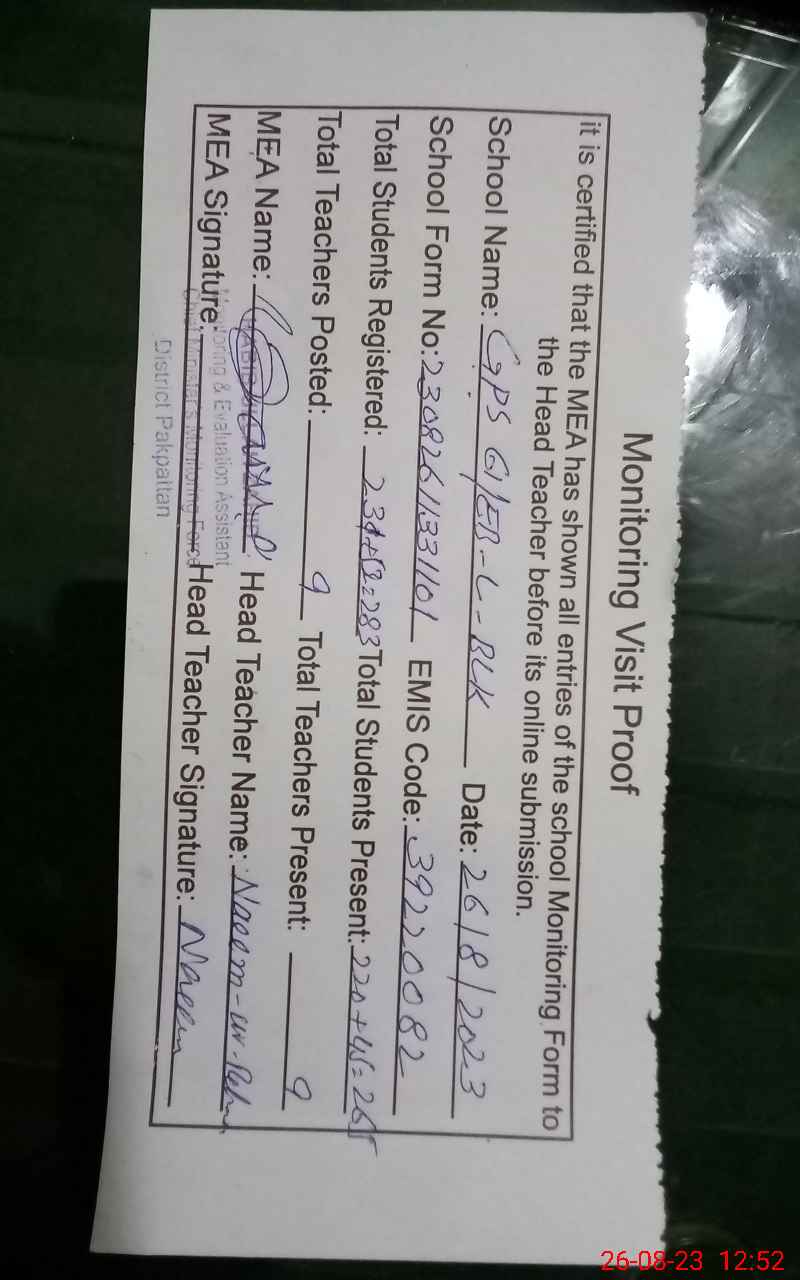 Monitoring Visit Proof
it is certified that the MEA has shown all entries of the school Monitoring Form to
the Head Teacher before its online submission.
School Name: GPS 61/EB-L-BLK Date: 26/8/2023
School Form No: 23082611331101 EMIS Code: 39220082
Total Students Registered: 231+52=283 Total Students Present: 220+45=265
Total Teachers Posted: 9 Total Teachers Present: 9
MEA Name: Head Teacher Name: Naeem-ur-
Monitoring & Evaluation Assistant
MEA Signature: Head Teacher Signature: Naeem
Chief Minister's Monitoring Force
District Pakpattan
26-08-23 12:52